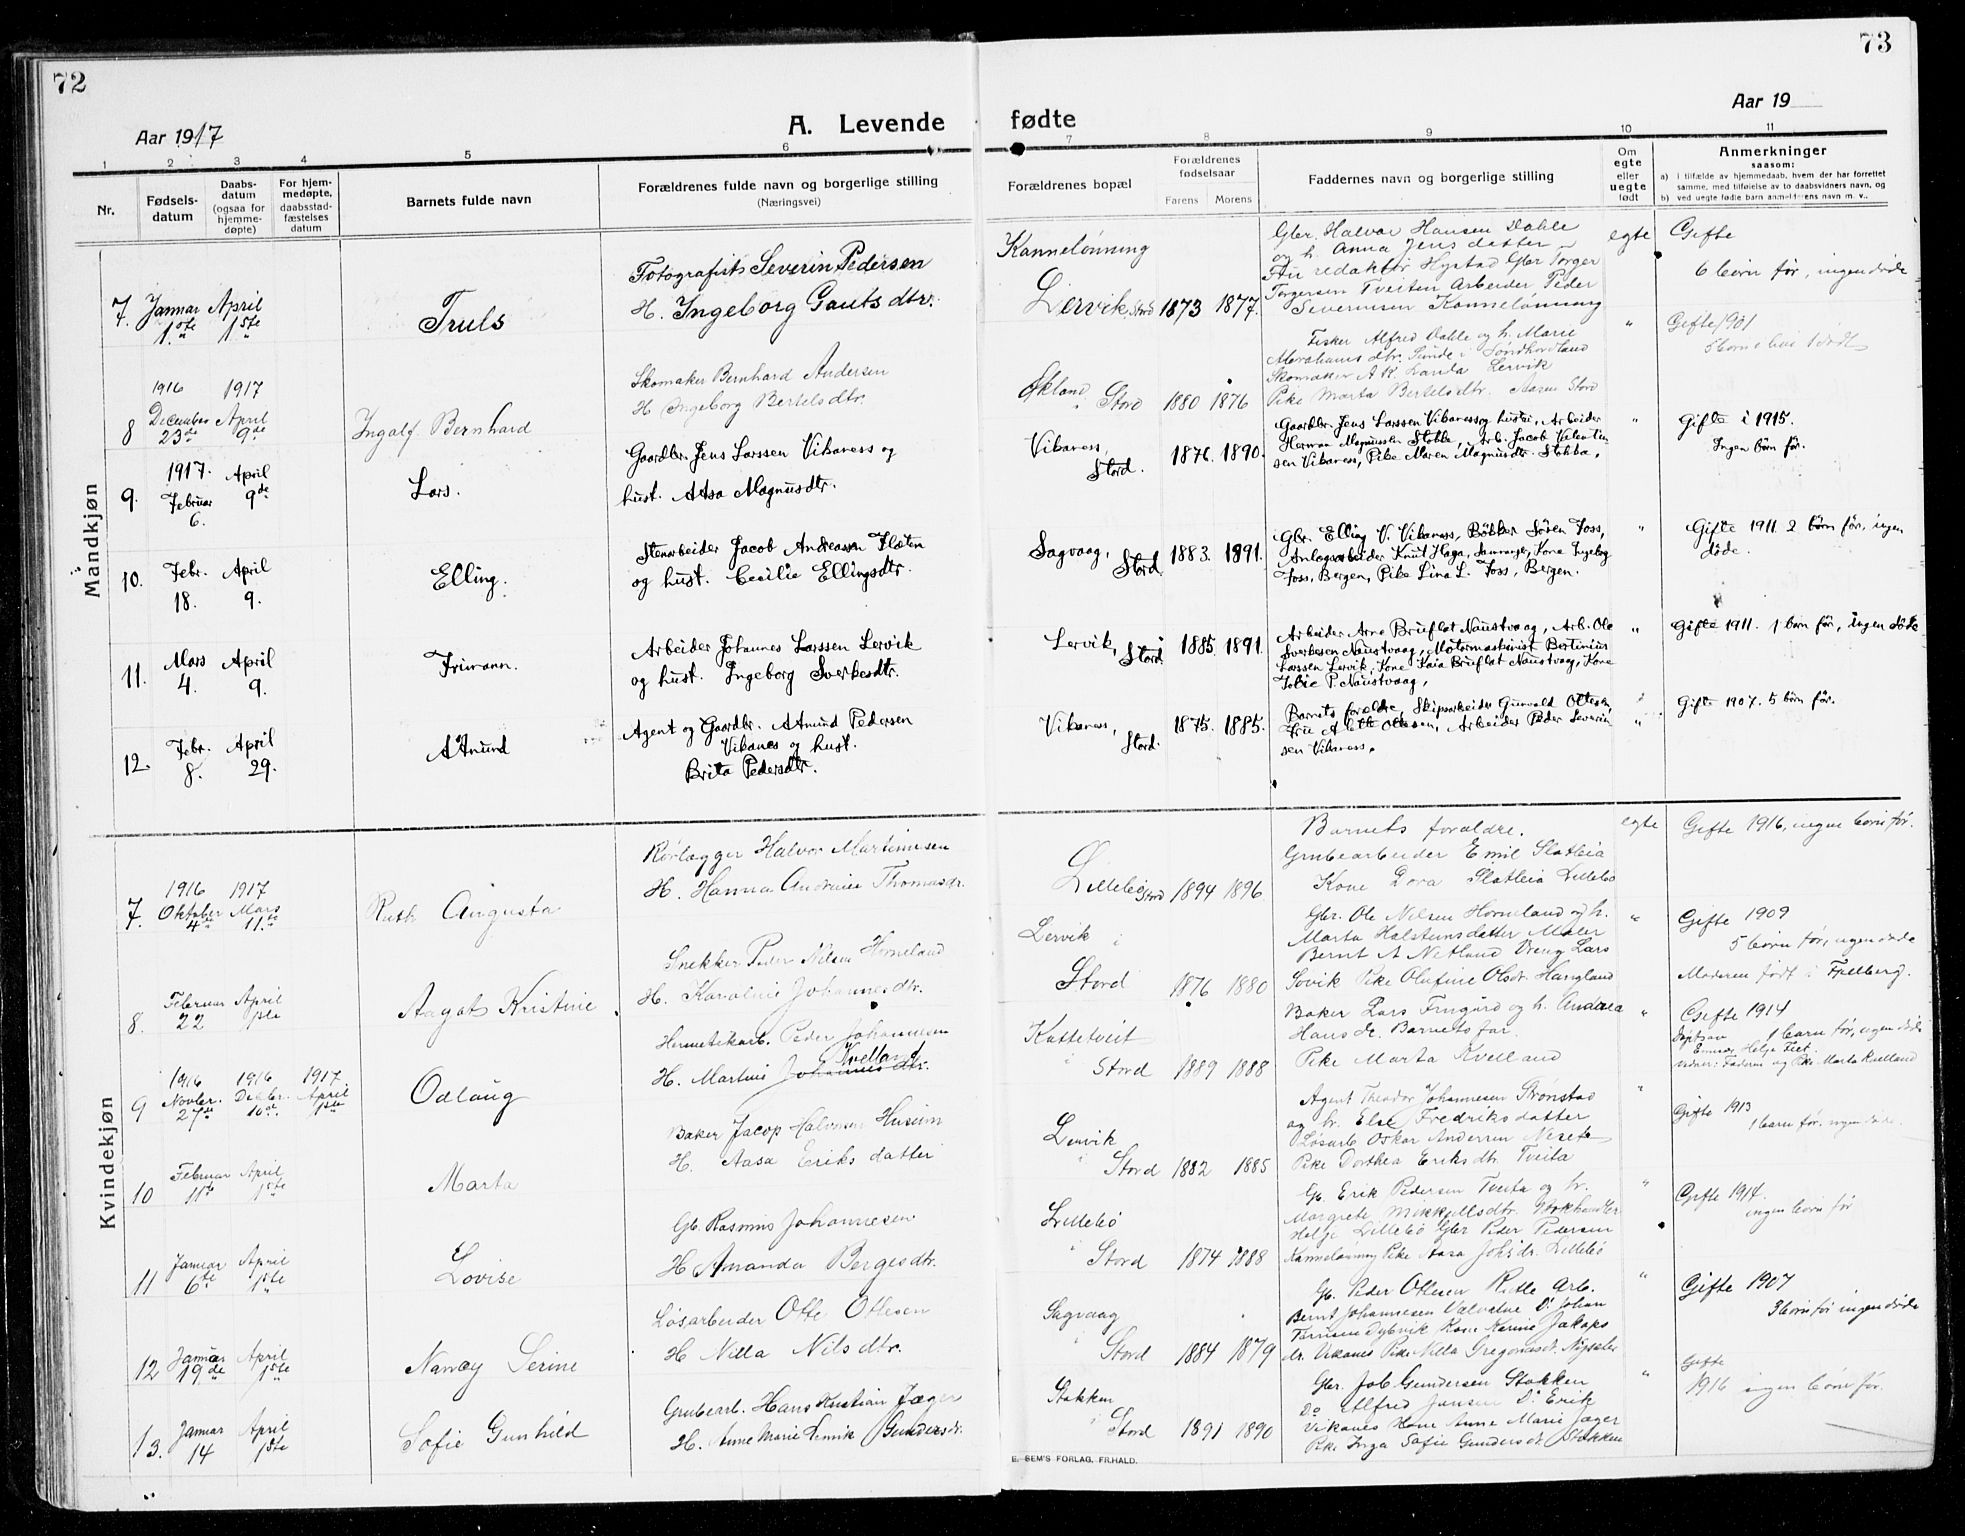 72
73
Aar 1917
A. Levende fødte
Aar 19
1 2 3 4 5 6 7 8 9 10 11
Nr.
Fødsels-datum
Daabs-datum (ogsaa for hjemme-døpte)
For hjem-medøpte, daabsstad-fæstelses datum
Barnets fulde navn
Forældrenes fulde navn og borgerlige stilling
(Næringsvei)
Forældrenes bopæl
Forældrenes fødselsaar
Farens Morens
Faddernes navn og borgerlige stilling
Om egte eller uegte født
Anmerkninger
saasom:
a) I tilfælde av hjemmedaab, hvem der har forrettet samme, med tilføielse av to daabsvidners navn, og
b) ved uegte fødte barn anmelderens navn m. v.,
Mandkjøn
7. Januar 1ste April 1ste
Truls
Fotografist Severin Pedersen
H. Ingeborg Gautsdtr.
Kannelønning
Lervik Stord 1873 1877.
Gbr. Halvor Hansen Dahle
og h. Anna Jensdatter
Fru redaktør Hystad Gbr Torger
Torgersen Tveiten Arbeider Peder
Severinsen Kannelønning
egte
Gifte
6 børn før, ingen døde
8 1916 December 23de 1917 April 9de
Ingolf Bernhard
Skomaker Bernhard Andersen
H Ingeborg Bertelsdtr.
Økland Stord 1880 1876
Fisker Alfred Dahle og h. Marie
Abrahamsdtr. Sunde i Søndhordland
Skomaker A K. Lervik
Pike Marta Bertelsdtr. Aasen Stord
"
Gifte 1901
5 børn 1 død
9. 1917. Februar 6. April 9de
Lars.
Gaardbr. Jens Larssen Vikaness og
hust. Aasa Magnusdtr.
Vikaness, Stord. 1876. 1890.
Gaardbr. Jens Larssen Vikaness og hustru, Arbeider
Herman Magnussen Stokke, Arb. Jacob Valentin
sen Vikaness, Pike Maren Magnusdtr. Stokke.
"
Gifte i 1915.
Ingen børn før.
10. Febr. 18. April 9.
Elling.
Stenarbeider Jacob Andreassen Fløten
og hust. Cecilie Ellingsdtr.
Sagvaag, Stord 1883. 1891.
Gbr. Elling V. Vikaness, Bøkker Søren Foss,
Anlægsarbeider Knut Haga, Kone Ingebog
Foss, Bergen, Pike Lina L. Foss, Bergen.
"
Gifte 1911 2 børn før, ingen
døde.
11. Mars 4. April 9.
Frimann.
Arbeider Johannes Larssen Lervik
og hust. Ingeborg Sverkesdtr.
Lervik, Stord 1885. 1891.
Arbeider Arne Bruflat Naustvaag, Arb. Ole
Sverkesen Naustvaag, Motormaskinist Bertinius
Larssen Lervik, Kone Kaia Bruflat Naustvaag, Kone
P. Naustvaag,
"
Gifte 1911. 1 barn før, ingen døde
12. Febr. 8. April 29.
Amund
Agent og Gaardbr. Amund Pedersen
Vikanes og hust.
Brita Pedersdtr.
Vikaness, Stord. 1875. 1885.
Barnets forældre, Skipsarbeider Gunvald Ottesen,
Fru Alette Ottesen, Arbeider Peder Severin
sen Vikaness.
"
Gifte 1907. 5 børn før.
Kvindekjøn
7. 1916 Oktober 4de 1917 Mars 11te
Ruth Augusta
Rørlægger Halvor Martinusen
H. Hanna Andrine Thomasdr.
Lillebø Stord 1894 1896
Barnets forældre.
Grubearbeider Emil Slatleia
Kone Dora Slatleia Lillebø
egte
Gifte 1916, ingen børn før.
8. Februar 22 April 1ste
Aagot Kristine
Snekker Peder Nilsen Horneland
H. Karoline Johannesdtr.
Lervik i
Stord 1876 1880
Gbr. Ole Nilsen Horneland og h.
Marta Halsteinsdatter Maler
Bernt A Netland Dreng Lars
Sovik Pike Olufine Olsdr. Haugland
"
Gifte 1909
5 børn før, ingen døde
Moderen født i Fjelberg.
9 1916 Novbr. 27de 1916 Decbr. 10de 1917. April 1ste
Odlaug
Hermetikarb. Peder Johannesen
Kvelland
H. Martine Johannesdtr.
Kattetveit
i Stord 1889 1888
Baker Lars Frugård og h. Andrea
Hansdr. Barnets far.
Pike Marta Kvelland
"
Gifte 1914
1 barn før, ingen døde
Helje
vidner: Faderen og Pike Marta Kvelland
10 Februar 11te April 1ste
Marta
Baker Jacop Halvorsen Huseim
H. Aasa Eriksdatter
Lervik
i Stord 1882 1885
Agent Theodor Johannesen Strønstad
og h. Else Fredriksdatter
Løsarb Oskar Andersen
Pike Dorthea Eriksdtr. Tveita
"
Gifte 1913
1 barn før, ingen døde.
11 Januar 6te April 1ste
Lovise
Gb. Rasmus Johannesen
H Amanda Bergesdtr.
Lillebø
i Stord 1874 1888
Gb. Erik Pedersen Tveita og h.
Margrete Mikkelsdtr.
Helje Lillebø Gbr Peder Pedersen
Kannelønning Pike Aasa Johsdr. Lillebø
"
Gifte 1914.
ingen børn før
12 Januar 19de April 1ste
Nancy Serine
Løsarbeider Otto Ottesen
H Nilla Nilsdtr.
Sagvaag
i Stord 1884 1879
Gb. Peder Ottesen Arb.
Bernt Johannesen Valvatne Do Johan
Dybvik Kone Karine Jakops
dr. Vikanes Pike Nilla Gregoriusdr.
"
Gifte 1907
3 børn før ingen døde
13. Januar 14 April 1ste
Sofie Gunhild
Grubearb. Hans Kristian Jæger
H. Anne Marie Gundersdr.
Stokken
i Stord 1891 1890
Gbr. Job Gundersen Stokken
Do Alfred Jansen Do Erik
Vikanes Kone Anne Marie Jæger
Pike Inga Sofie Gundersdr. Stokken
"
Gifte
1916 ingen børn før.
E. SEM'S FORLAG, FR.HALD.